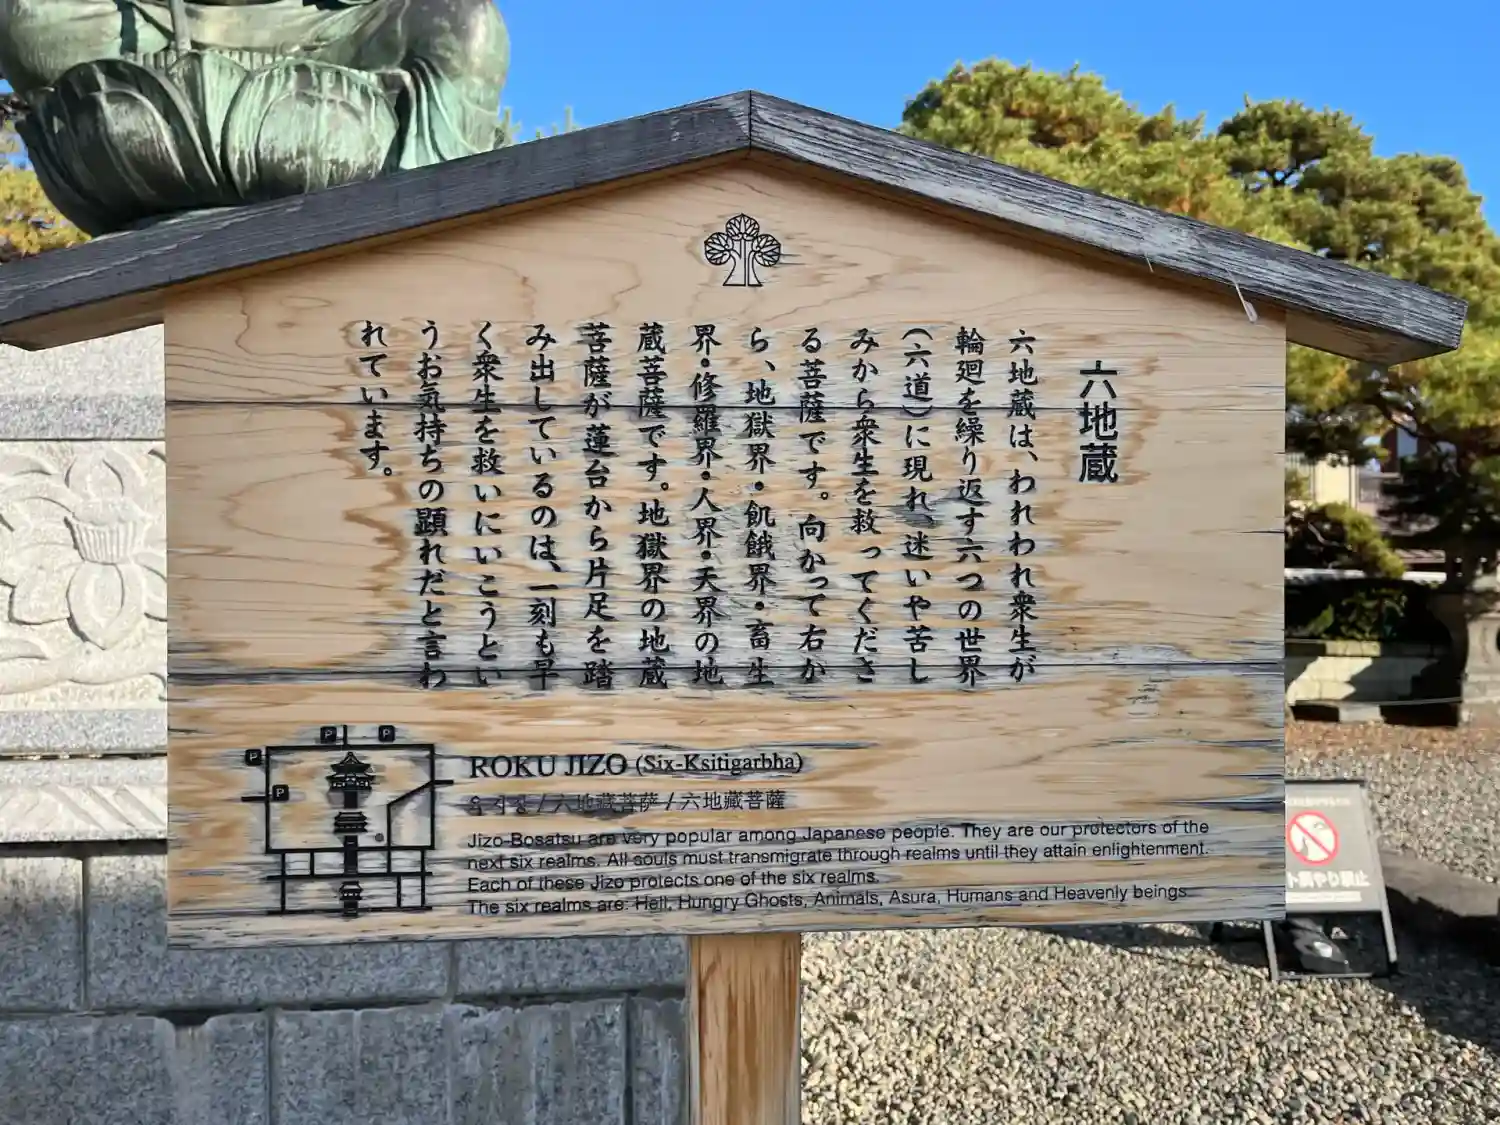 六地蔵
六地蔵は、われわれ衆生が
輪廻を繰り返す六つの世界
(六道)に現れ、迷いや苦し
みから衆生を救ってくださ
る菩薩です。向かって右か
ら、地獄界・飢餓界・畜生
界・修羅界・人界・天界の地
蔵菩薩です。地獄界の地蔵
菩薩が蓮台から片足を踏
み出しているのは、一刻も早
く衆生を救いにいこうとい
うお気持ちの顕れだと言わ
れています。
P P
P
P
ROKU JIZO (Six-Ksitigarbha)
육지장/六地藏菩萨/六地藏菩薩
Jizo-Bosatsu are very popular among Japanese people. They are our protectors of the
next six realms. All souls must transmigrate through realms until they attain enlightenment.
Each of these Jizo protects one of the six realms.
The six realms are: Hell, Hungry Ghosts, Animals, Asura, Humans and Heavenly beings.
ト餌やり禁止